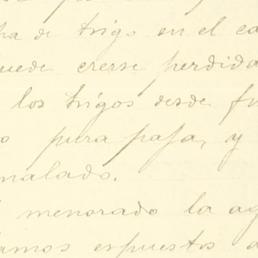 ha de trigo en el ca
uede creerse perdida
los trigos desde fi
o pura paja, y
malado.
menorado la ag
amos espuestos a